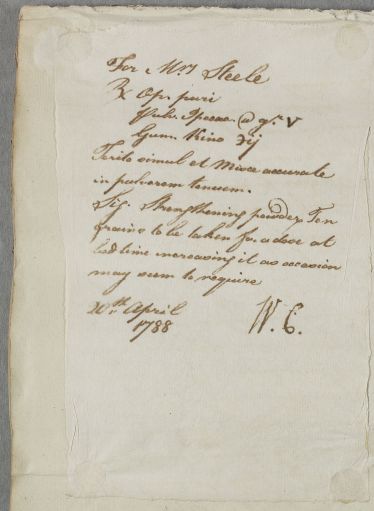 For Mrs Steele
℞ Op. puri
Pulv. Ipecac. @ gr. V
Gum. Kino ʒij
Terito simul et Misce accurate
in pulverem tenuem.
Sig. Strengthening powder Ten
grains to be taken for a dose at
bed time increasing it as occasion
may seem to require
20th April
1788
W. C.